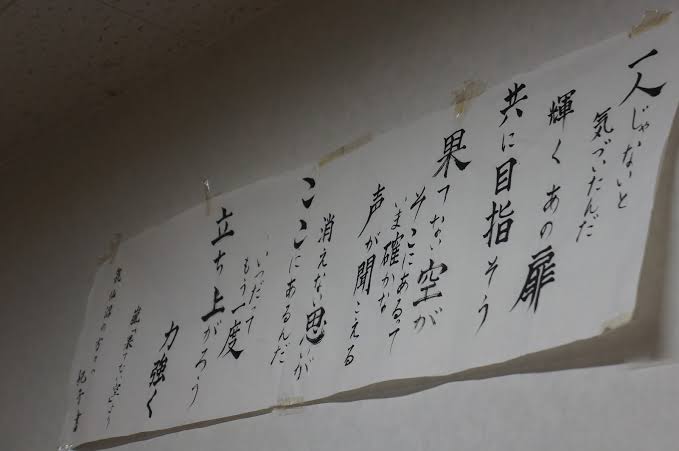 一人じゃないと
気づいたんだ
輝くあの扉
共に目指そう
果てない空が
そこにあるって
いま確かな
声が聞こえる
消えない思いが
ここにあるんだ
いつだって
もう一度
立ち上がろう
力強く
嵐「果てない空」より